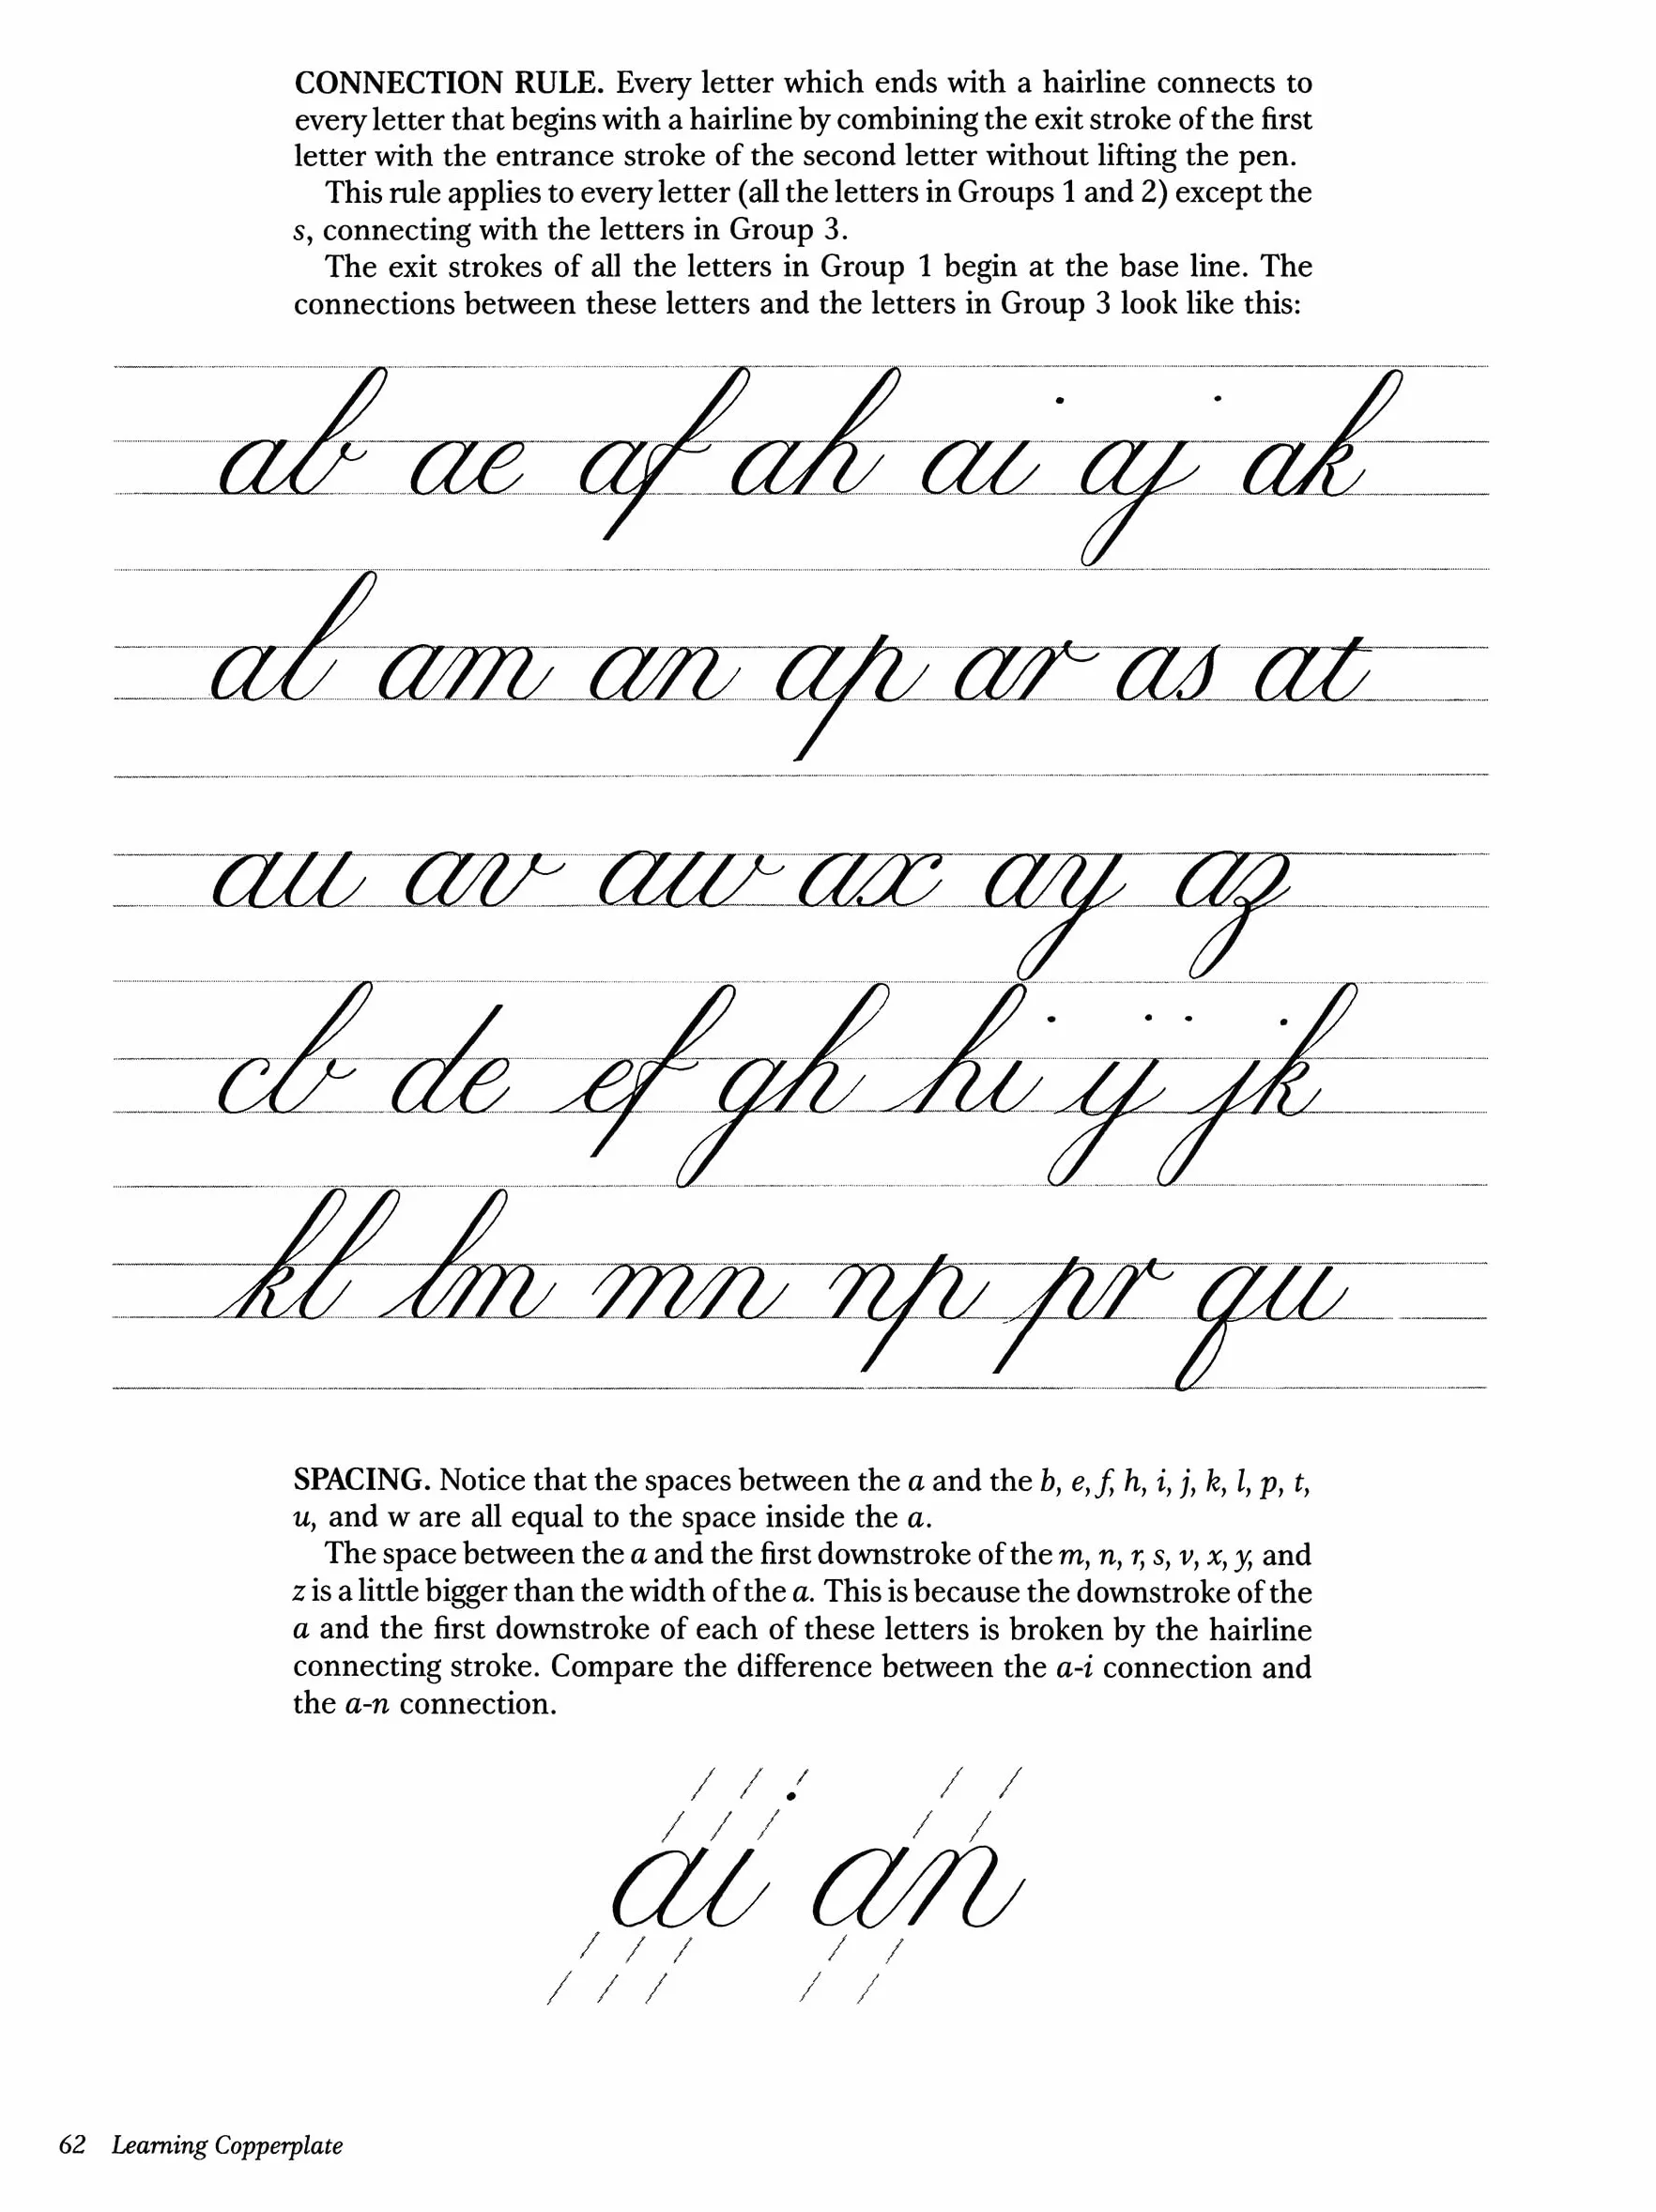 CONNECTION RULE. Every letter which ends with a hairline connects to
every letter that begins with a hairline by combining the exit stroke of the first
letter with the entrance stroke of the second letter without lifting the pen.
This rule applies to every letter (all the letters in Groups 1 and 2) except the
s, connecting with the letters in Group 3.
The exit strokes of all the letters in Group 1 begin at the base line. The
connections between these letters and the letters in Group 3 look like this:
ab ae af ah ai aj ak
al am an ap ar as at
au av aw ax ay az
cb de ef gh hi ij jk
kl lm mn np pr qu
SPACING. Notice that the spaces between the a and the b, e, f, h, i, j, k, l, p, t,
u, and w are all equal to the space inside the a.
The space between the a and the first downstroke of the m, n, r, s, v, x, y, and
z is a little bigger than the width of the a. This is because the downstroke of the
a and the first downstroke of each of these letters is broken by the hairline
connecting stroke. Compare the difference between the a-i connection and
the a-n connection.
ai an
62 Learning Copperplate